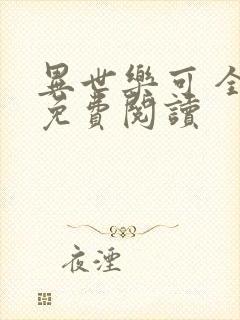 異世樂可全
免費閱讀
夜湮